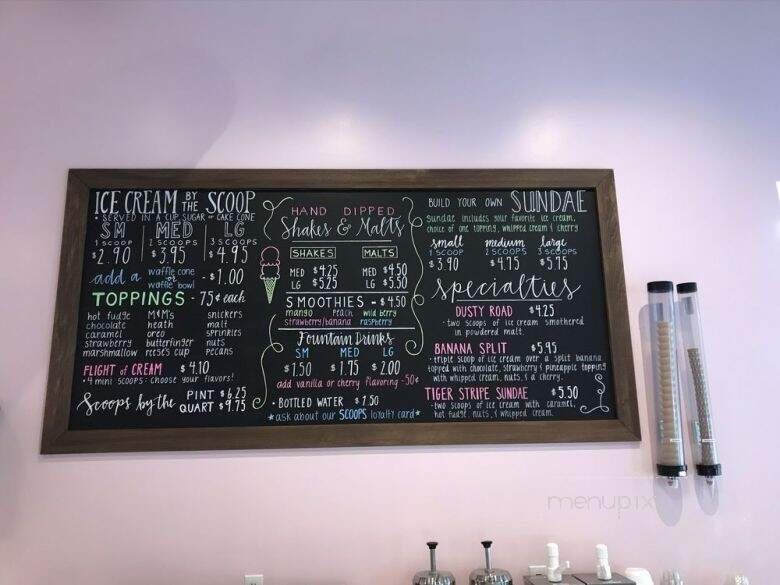 ICE CREAM BY THE SCOOP
• SERVED IN A CUP, SUGAR OR CAKE CONE
SM MED LG
1 SCOOP 2 SCOOPS 3 SCOOPS
$2.90 $3.95 $4.95
add a waffle cone or waffle bowl - $1.00
TOPPINGS - 75¢ each
hot fudge M&M's snickers
chocolate heath malt
caramel oreo sprinkles
strawberry butterfinger nuts
marshmallow reese's cup pecans
FLIGHT of CREAM $4.10
• 4 mini scoops: choose your flavors!
Scoops by the PINT $6.25
QUART $9.75
HAND DIPPED
Shakes & Malts
SHAKES MALTS
MED $4.25 MED $4.50
LG $5.25 LG $5.50
SMOOTHIES - $4.50
mango peach wild berry
strawberry/banana raspberry
Fountain Drinks
SM MED LG
$1.50 $1.75 $2.00
add vanilla or cherry flavoring - 50¢
• BOTTLED WATER $1.50
★ask about our SCOOPS loyalty card★
BUILD YOUR OWN SUNDAE
sundae includes your favorite ice cream,
choice of one topping, whipped cream & cherry
small medium large
1 SCOOP 2 SCOOPS 3 SCOOPS
$3.90 $4.75 $5.75
specialties
DUSTY ROAD $4.25
-two scoops of ice cream smothered
in powdered malt.
BANANA SPLIT $5.95
-triple scoop of ice cream over a split banana
topped with chocolate, strawberry & pineapple topping
with whipped cream, nuts, & a cherry.
TIGER STRIPE SUNDAE $5.50
-two scoops of ice cream with caramel,
hot fudge, nuts, & whipped cream.
menupix